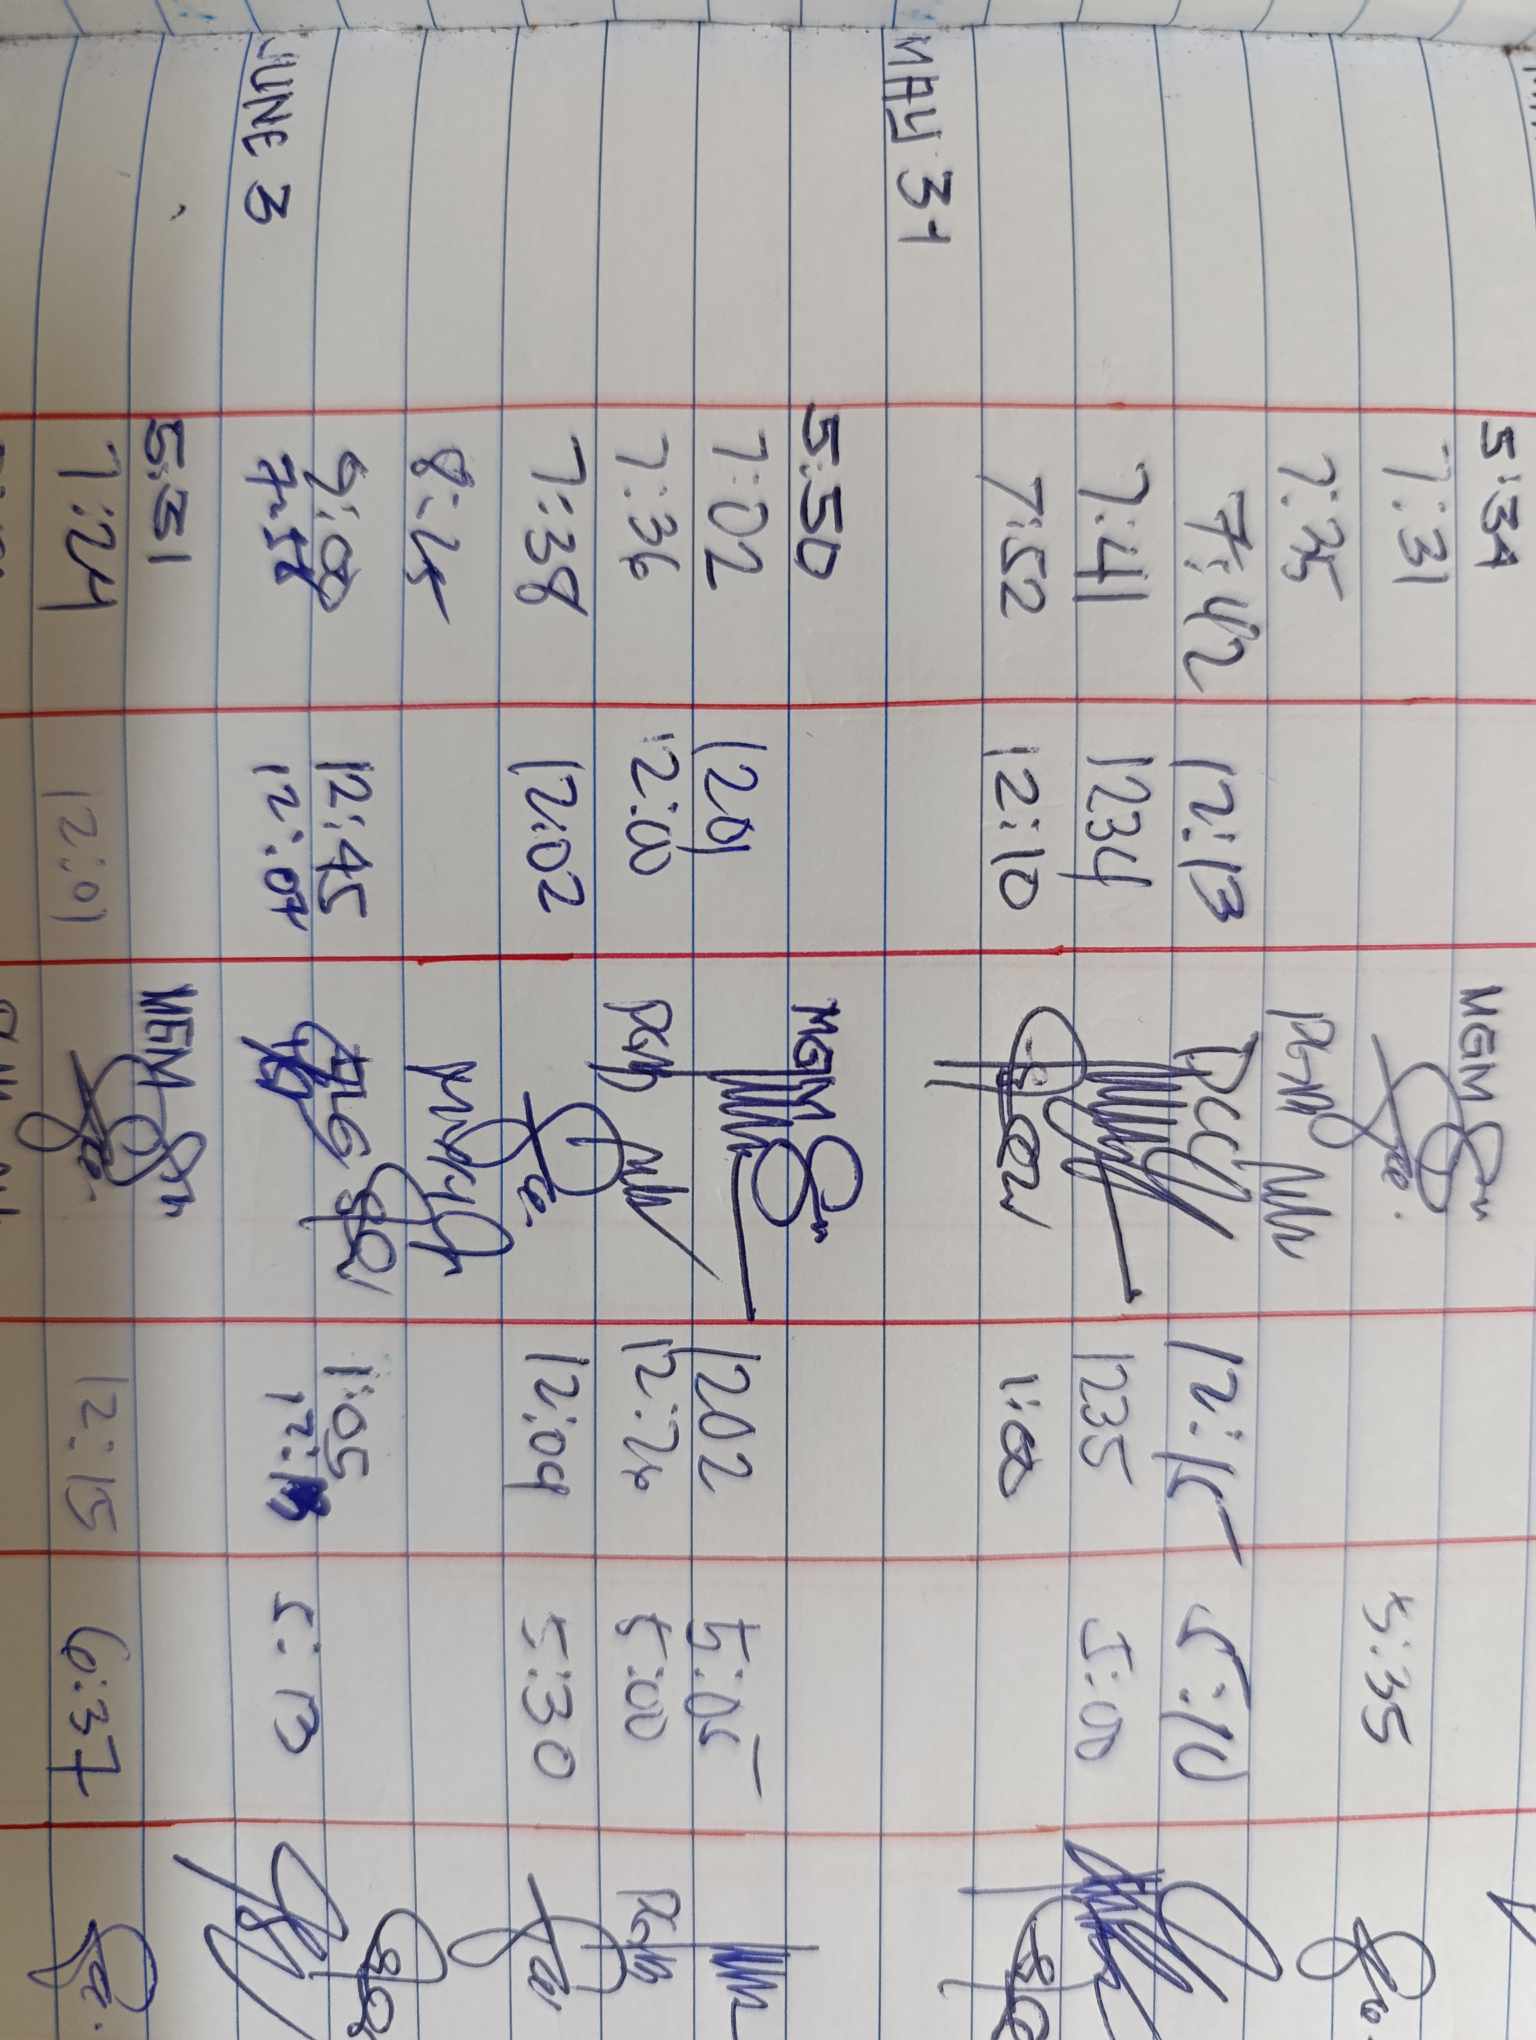 5:34 MGM
7:31 5:35
7:35 PGM
7:42 12:13 12:15 5:10
7:41 1234 1235 5:00
7:52 12:10 1:00
MAY 31
5:50 MGM
7:02 1201 1202 5:05
7:36 12:00 PGM 12:26 5:00 PGM
7:38 12:02 12:09 5:30
8:25
9:00 12:45 1:05
JUNE 3 12:07 5:13
5:31 MGM
7:24 12:01 12:15 6:37